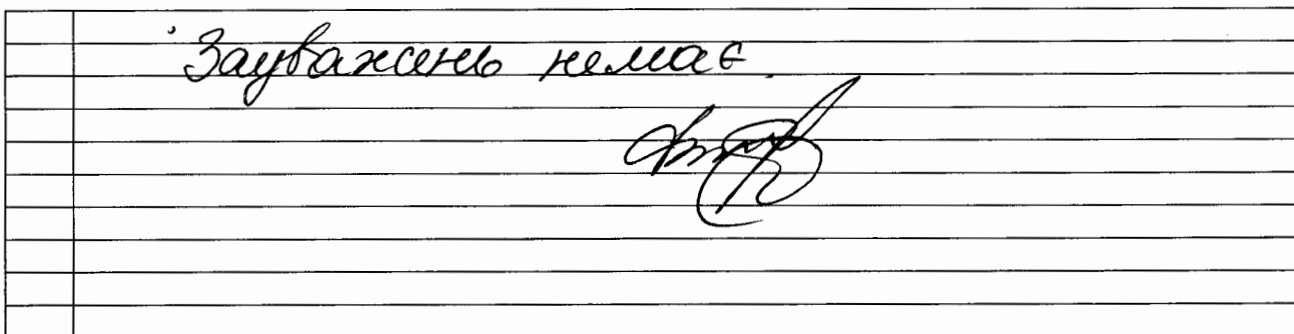 Зауважень немає